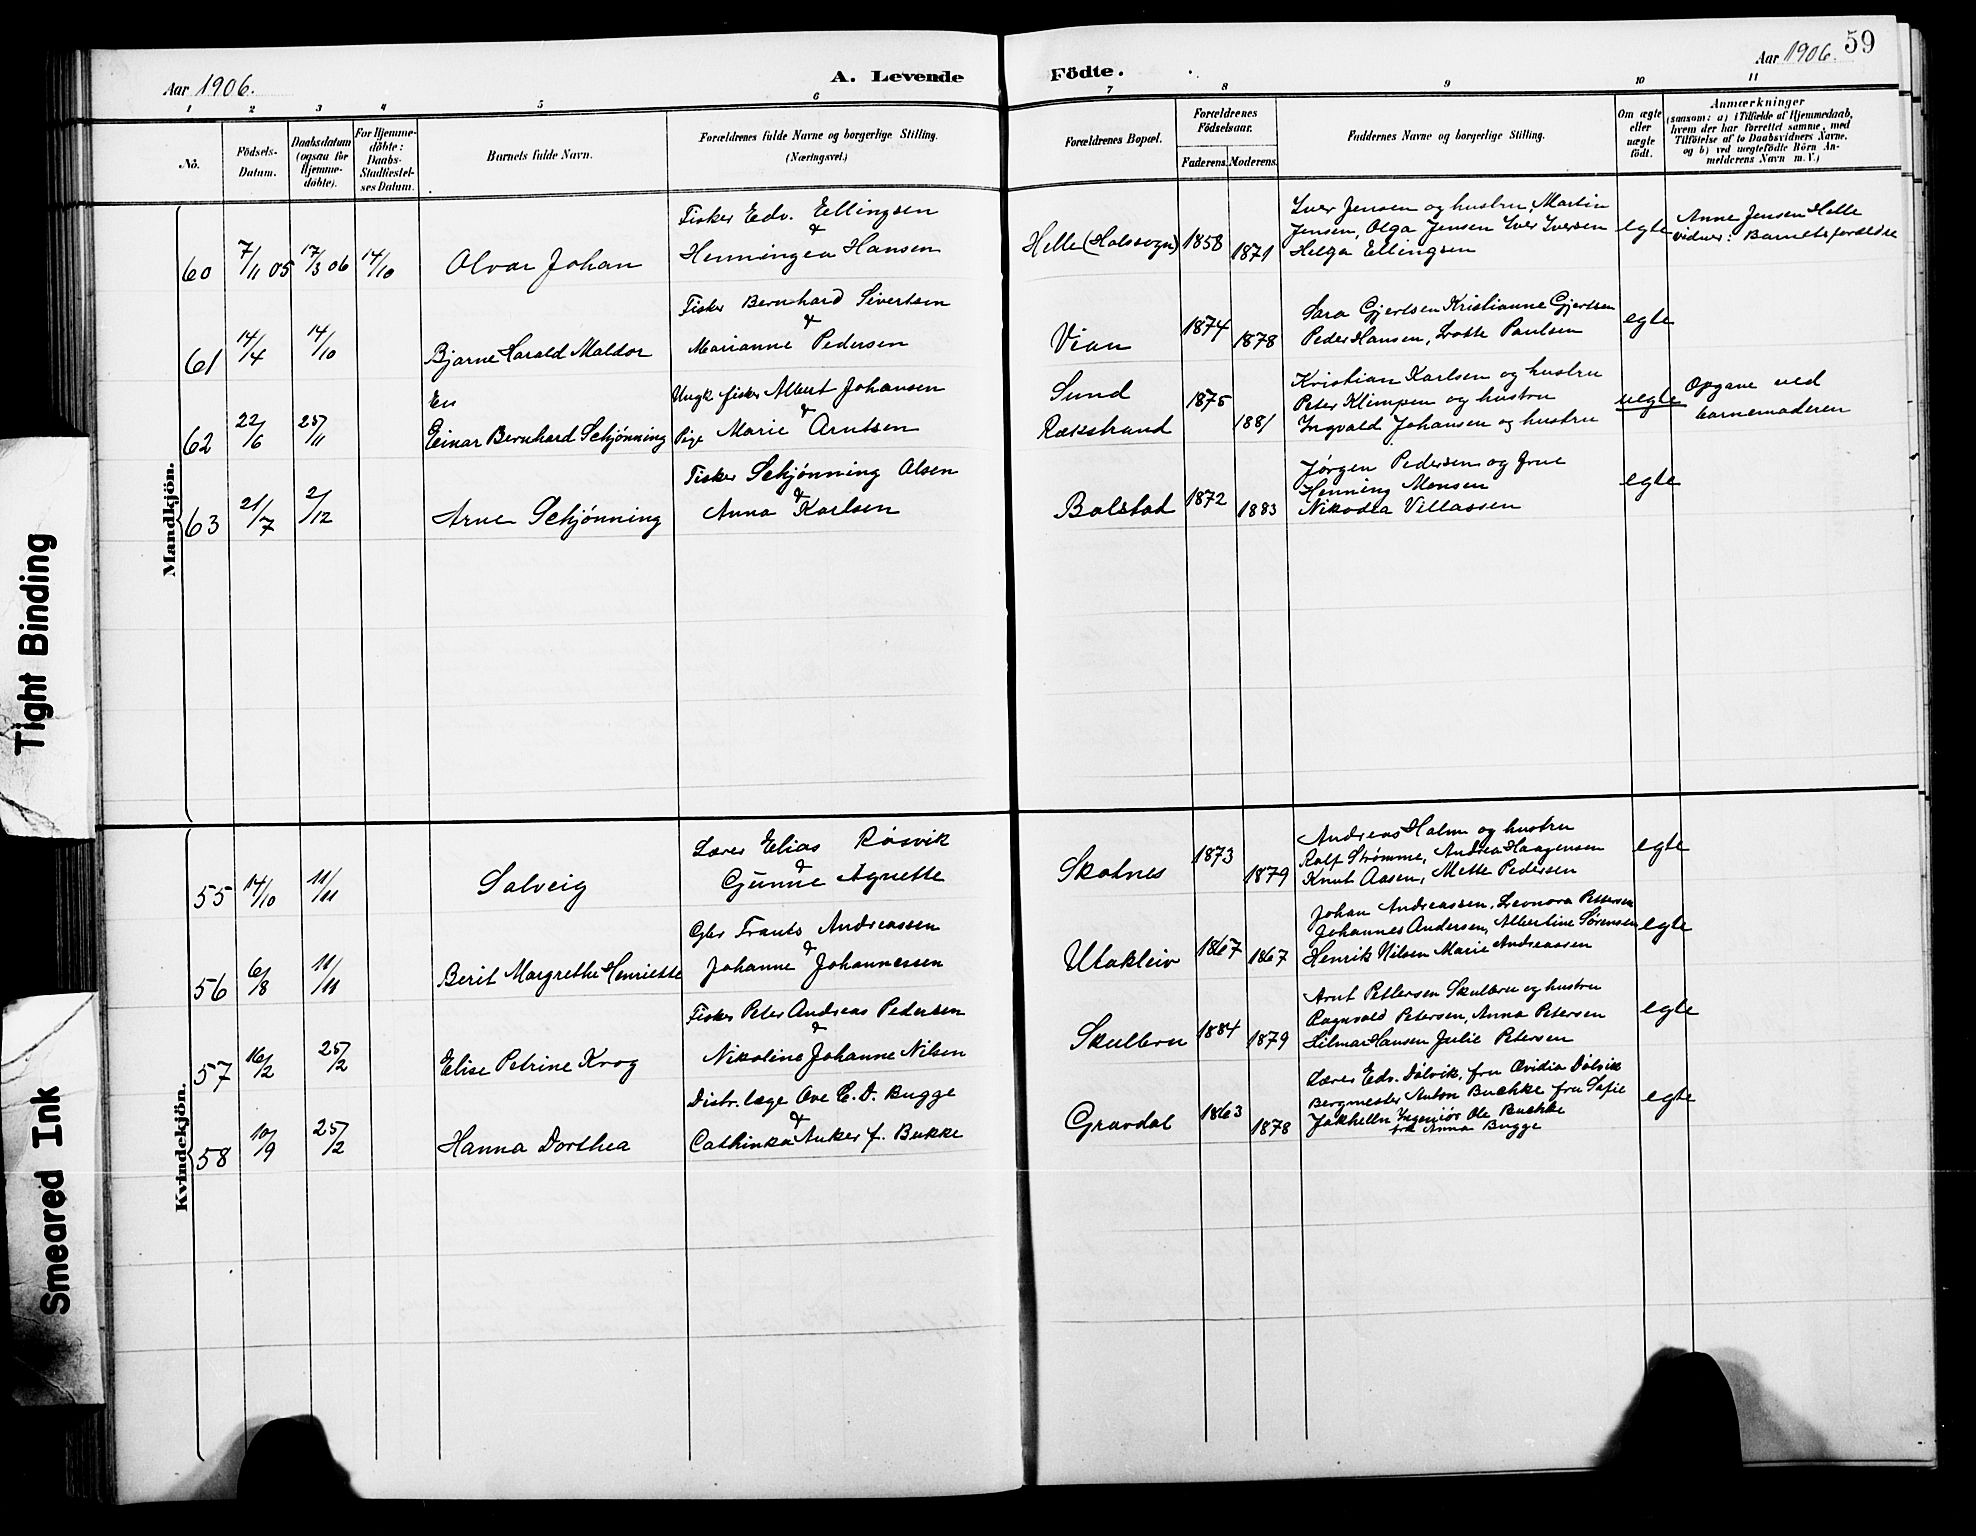 Aar 1906.
A. Levende Födte.
Aar 1906. 59
1 2 3 4 5 6 7 8 9 10 11
No.
Födsels-Datum.
Daabsdatum (ogsaa for Hjemme-döbte).
For Hjemme-döbte: Daabs-Stadfæstel-ses Datum.
Barnets fulde Navn.
Forældrenes fulde Navne og borgerlige Stilling. (Næringsvei.)
Forældrenes Bopæl.
Forældrenes Födselsaar.
Faderens. Moderens.
Faddernes Navne og borgerlige Stilling.
Om ægte eller uægte födt.
Anmærkninger
(saasom: a) i Tilfælde af Hjemmedaab,
hvem der har forrettet samme, med
Tilföielse af to Daabsvidners Navne.
og b) ved uægtefödte Börn An-
melderens Navn m. V.)
Mandkjön.
60 7/11 05 17/3 06 14/10 Alvar Johan
Fisker Edv. Ellingsen
&
Henningea Hansen
Helle (Halssogn) 1858 1871
Iver Jensen og hustru, Martin
Jensen, Olga Jensen Iver Iversen
Helga Ellingsen
egte
Anne Jensen Helle
vidner: Barnets forældre
61 14/4 14/10 Bjarne Harald Maldor
Fisker Bernhard Sivertsen
&
Marianne Pedersen
Vian 1874 1878
Sara Gjertsen Kristianne Gjertsen
Peder Hansen, Lotte Paulsen
egte
62 22/6 25/11 En
Einar Bernhard Schjønning
Ungk fisker Albert Johansen
&
Pige Marie Arntsen
Sund
Rækstrand
1875 1881
Kristian Karlsen og hustru
Peter Klimpen og hustru
Ingvald Johansen og hustru
uegte
Opgave ved
barnemoderen
63 21/7 2/12 Arne Schjønning
Fisker Schjønning Olsen
&
Anna Karlsen
Balstad 1872 1883
Jørgen Pedersen og frue
Henning Monsen
Nikodea Villassen
egte
Kvindekjön.
55 14/10 11/11 Solveig
Lærer Elias Røsvik
&
Gunne Agnette
Skotnes 1873 1879
Andreas Holm og hustru
Rolf Strømme, Andrea Haagensen
Knut Aasen, Mette Pedersen
egte
56 6/8 11/11 Berit Margrethe Henriette
Gbr Frants Andreassen
&
Johanne Johannessen
Utakleiv 1867 1867
Johan Andreassen, Leonora Pettersen
Johannes Andersen, Albertine Sørensen
Henrik Nilsen Marie Andreassen
egte
57 16/2 25/2 Elise Petrine Krog
Fisker Peter Andreas Pedersen
&
Nikoline Johanne Nilsen
Skulbru 1884 1879
Arnt Pettersen Skulbru og hustru
Ragnvald Petersen, Anna Petersen
Hilmar Hansen Julie Petersen
egte
58 10/9 25/2 Hanna Dorthea
Distr. læge Ove C. D. Bugge
&
Cathinka Anker f. Bukke
Gravdal 1863 1878
Lærer Edv. Dølvik, fru Ovidia Dølvik
Bergmester Anton Buchke fru Sofie
Jakhelln Ingeniør Ole Buchke
frk Anna Bugge
egte
Tight Binding
Smeared Ink